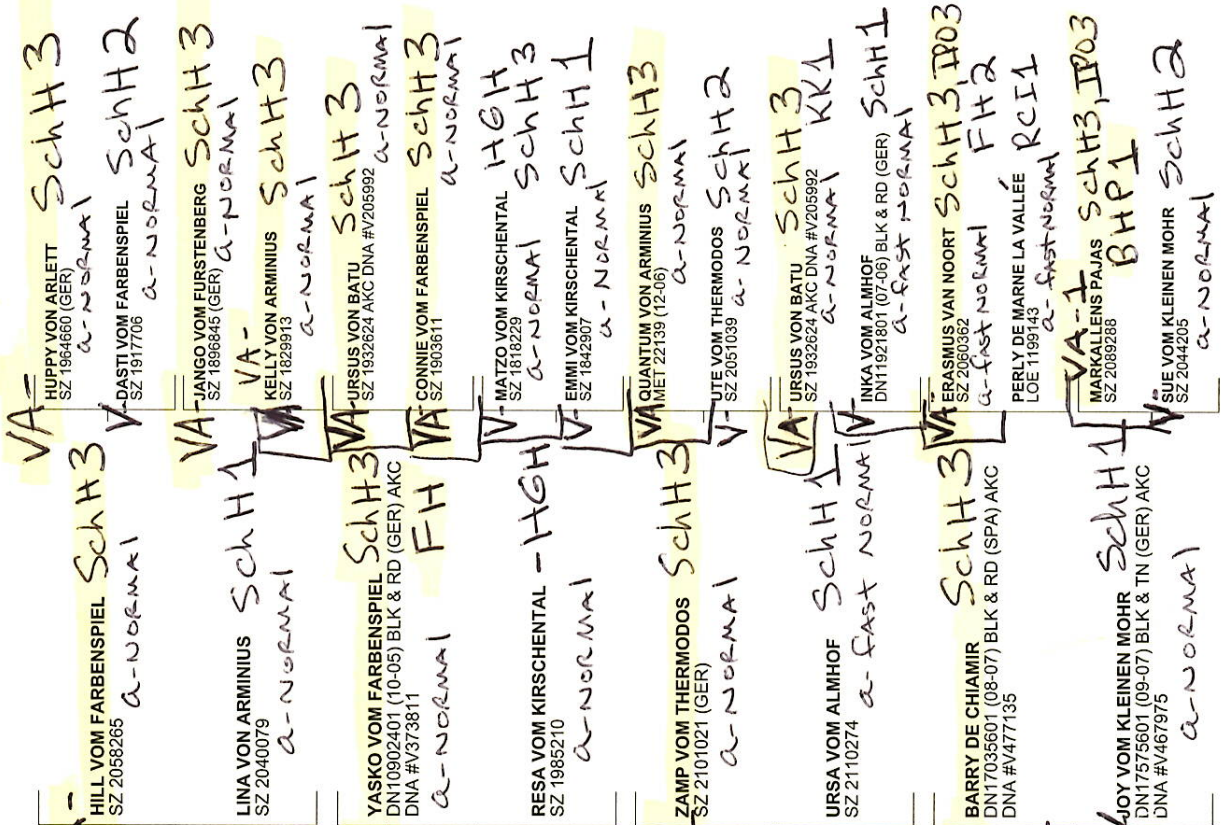 HILL VOM FARBENSPIEL SchH3
SZ 2058265
a-NORMAL
LINA VON ARMINIUS SchH1
SZ 2040079
a-NORMAL
YASKO VOM FARBENSPIEL SchH3
DN10902401 (10-05) BLK & RD (GER) AKC
DNA #V373811 FH
a-NORMAL
RESA VOM KIRSCHENTAL - HGH
SZ 1985210
a-NORMAL
ZAMP VOM THERMODOS SchH3
SZ 2101021 (GER)
a-NORMAL
URSA VOM ALMHOF SchH1
SZ 2110274
a-FAST NORMAL
BARRY DE CHIAMIR SchH3
DN17035601 (08-07) BLK & RD (SPA) AKC
DNA #V477135
JOY VOM KLEINEN MOHR SchH1
DN17575601 (09-07) BLK & TN (GER) AKC
DNA #V467975
a-NORMAL
VA- HUPPY VON ARLETT SchH3
SZ 1964660 (GER)
a-NORMAL
V- DASTI VOM FARBENSPIEL SchH2
SZ 1917706
a-NORMAL
VA- JANGO VOM FURSTENBERG SchH3
SZ 1896845 (GER)
a-NORMAL
VA-
KELLY VON ARMINIUS SchH3
SZ 1829913
a-NORMAL
VA- URSUS VON BATU SchH3
SZ 1932624 AKC DNA #V205992
a-NORMAL
VA- CONNIE VOM FARBENSPIEL SchH3
SZ 1903611
a-NORMAL
V- MATZO VOM KIRSCHENTAL HGH
SZ 1818229 SchH3
a-NORMAL
V- EMMI VOM KIRSCHENTAL SchH1
SZ 1842907
a-NORMAL
VA QUANTUM VON ARMINIUS SchH3
MET 22139 (12-06)
a-NORMAL
V- UTE VOM THERMODOS SchH2
SZ 2051039
a-NORMAL
VA- URSUS VON BATU SchH3
SZ 1932624 AKC DNA #V205992
a-NORMAL KK1
V- INKA VOM ALMHOF
DN11921801 (07-06) BLK & RD (GER) SchH1
a-FAST NORMAL
VA- ERASMUS VAN NOORT SchH3, IPO3
SZ 2060362
a-FAST NORMAL FH2
PERLY DE MARNE LA VALLÉE RCI1
LOE 1199143
a-FAST NORMAL
VA-1
MARKALLENS PAJAS SchH3, IPO3
SZ 2089288 BHP1
V- SUE VOM KLEINEN MOHR SchH2
SZ 2044205
a-NORMAL